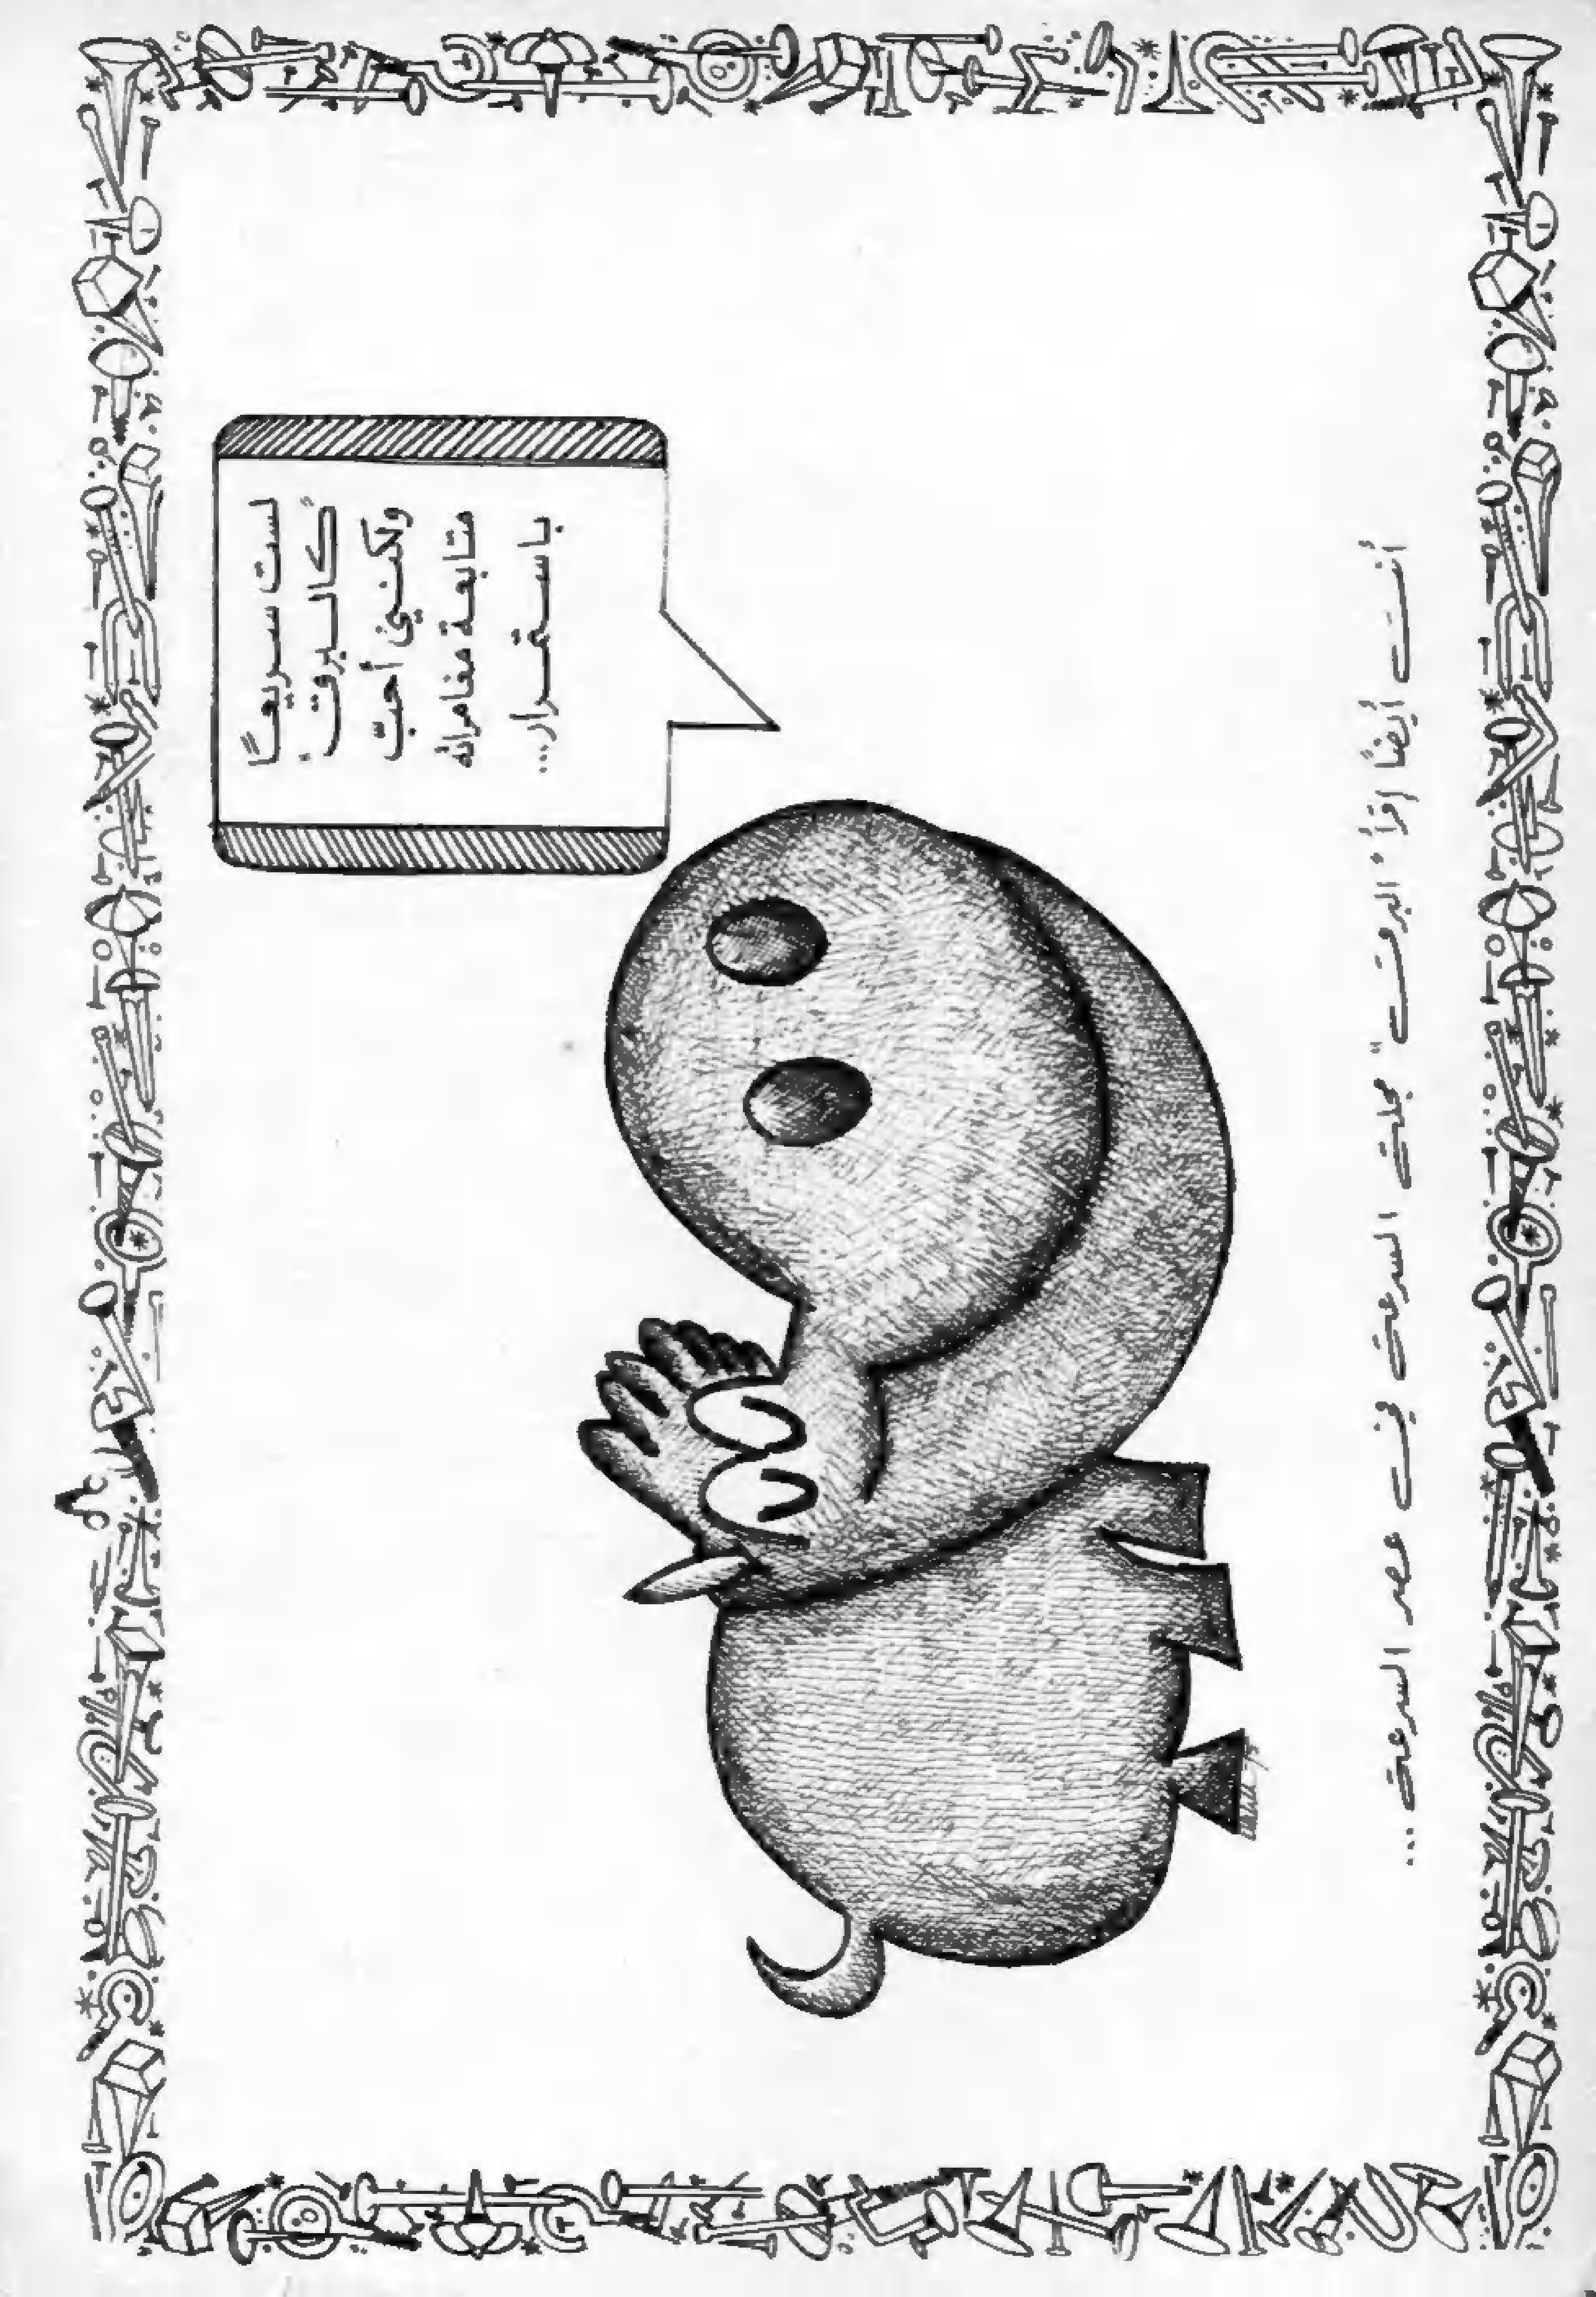 لست سريعًا
"كالبرق"
ولكنني أحبّ
متابعة مغامراته
باستمرار...
أنت أيضًا إقرأ "البرق" مجلة السرعة في عصر السرعة ...